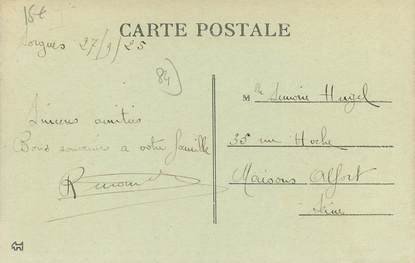 15€
CARTE POSTALE
Sorgues 27/9/25
84)
Mlle Simone
Sincères amitiés
Bons souvenirs a votre famille
35 rue Hoche
Maisons Alfort
Seine